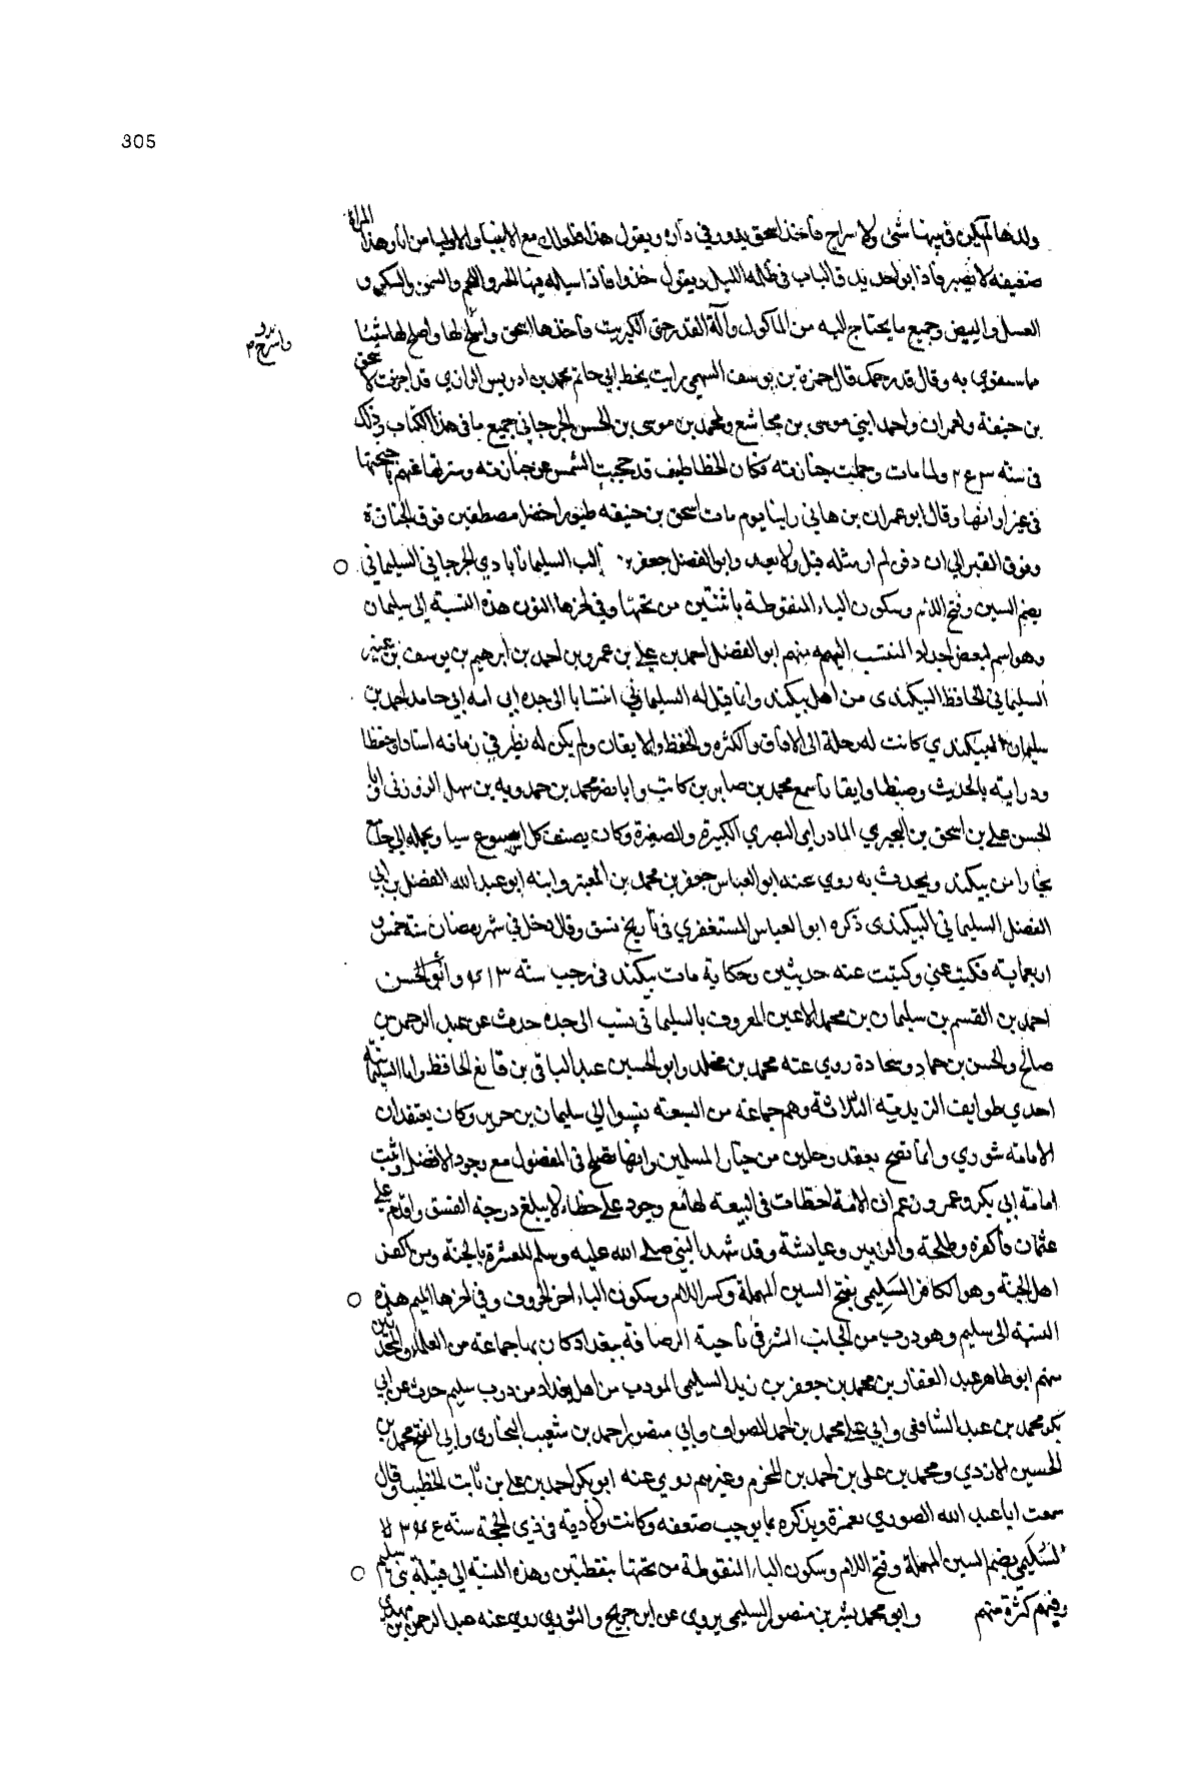 305
المراة
ولدها لم يكن في بيتها شئ ولا سراج فأخذ اسحق يدور في داره ويقول هذا ظوالك مع الانبياء والاوليا من انا وهذا
ضعيفة لا تصبر فاذا بواحد يدق الباب في ظلمة الليل ويقول خذوا فاذا سياله فيها الخبز واللحم والسمن والسكر و
العسل والبيض وجميع ما يحتاج اليه من المأكول وآلة القدر حتى الكبريت فأخذها اسحق واصلح لها شيئا
واسرج
ما سعوي به وقال حمزة بن يوسف السهمي رايت بخط ابي حاتم محمد بن ادريس الرازي قد اجزت لاسحق
بن حنيفة ولعمران واحمد ابني موسى بن مجاشع ولمحمد بن موسى بن الحسن الجرجاني جميع ما في هذا الكتاب وذلك
في سنه ٢٤٣ ولما مات وحملت جنازته فكان الخطاطيف قد حجبت الشمس عن جنازته وسترتها عنهم باجنحتها
في غير اوانها وقال ابو عمران بن هاني راينا يوم مات اسحق بن حنيفه طيورا خضرا مصطفين فوق الجنازة
وفوق القبر الي ان دفن لم ار مثله قبل ولا بعد وابو الفضل جعفر بن السليماناباذي الجرجاني السليماني
بضم السين وفتح اللام وسكون الياء المنقوطة باثنتين من تحتها وفي اخرها النون هذه النسبة الى سليمان
وهو اسم لبعض اجداد المنتسب اليه منهم ابو الفضل احمد بن علي بن عمرو بن احمد بن ابرهيم بن يوسف بن عنبر
السليماني الحافظ البيكندى من اهل بيكند وانما قيل له السليماني انتسابا الى جده ابي امه ابي حامد احمد بن
سليمان البيكندي كانت له رحلة الى الافاق والكثره والحفظ والاتقان ولم يكن له نظير في زمانه اسنادا وحفظا
ودراية بالحديث وضبطا واتقانا سمع محمد بن صابر بن كاتب وابا نصر محمد بن حمدويه بن سهل المروزي وابا
الحسن علي بن اسحق بن البحيري المادرايي البصري الكبيرة والصغيرة وكان يصنف كل اسبوع شيا ويحمله الي جامع
بخارا من بيكند ويحدث به روي عنه ابو العباس جعفر بن محمد بن المعتز وابنه ابو عبد الله الفضل بن ابي
الفضل السليماني البيكندى ذكره ابو العباس المستغفري في تاريخ نسف وقال دخل في شهر رمضان سنة خمس و
اربعمايه فكتب عني وكتبت عنه حديثين وحكاية مات ببيكند في رجب سنه ٤١٣ وابو الحسن
احمد بن القسم بن سليمان بن محمد الاعين المعروف بالسليماني نسب الى جده حدث عن عبد الرحمن بن
صالح والحسن بن حماد وسجادة روي عنه محمد بن مخلد وابو الحسين عبد الباقي بن قانع الحافظ واما السليمانية
احدي طوايف الزيدية الثلاثة وهم جماعة من الشيعه نسبوا الي سليمان بن جرير وكان يعتقد ان
الامامة شوري وانها تصح بعقد رجلين من خيار المسلمين وانها تصلح في المفضول مع وجود الافضل واثبت
امامة ابي بكر وعمر وزعم ان الامة اخطات في البيعه لهما مع وجود علي خطاء لا يبلغ درجة الفسق واقدم علي
عثمان فأكفره وطلحة والزبير وعايشة وقد شهد النبي صلى الله عليه وسلم للعشرة بالجنة ومن اكفر
اهل الجنة فهو الكافر السَلِيمي بفتح السين المهملة وكسر اللام وسكون الياء اخر الحروف وفي اخرها الميم هذه
النسبة الى سليم وهو درب من الجانب الشرقي ناحية الرصافة ببغداد كان بها جماعة من العلماء والمحدثين
منهم ابو طاهر عبد الغفار بن محمد بن جعفر بن زيد السليمي المودب من اهل بغداد من درب سليم حدث عن ابي
بكر محمد بن عبد الشافعي وابي علي محمد بن احمد الصواف وابي منصور احمد بن شعيب البخاري وابي الفتح محمد بن
الحسين الازدي ومحمد بن علي بن احمد بن المخرم وغيرهم روي عنه ابو بكر احمد بن علي بن ثابت الخطيب وقال
سمعت ابا عبد الله الصوري يغمزه ويذكره بما يوجب ضعفه وكانت ولادته في ذي الحجة سنة
السُلَيمي بضم السين المهملة وفتح اللام وسكون الياء المنقوطة من تحتها بنقطتين وهذه النسبة الى قبيلة بني سليم
وفيهم كثرة منهم وابو محمد بشر بن منصور السليمي يروي عن ابن جريج والثوري روي عنه عبد الرحمن بن مهدي